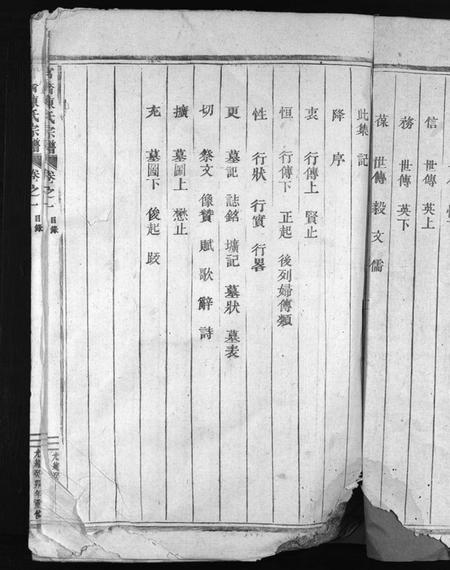 信 世傳 英上
務 世傳 英下
葆 世傳 毅 文 儒
此集 記
降 序
衷 行傳上 賢止
恒 行傳下 正起 後列婦傳類
性 行狀 行實 行畧
更 墓記 誌銘 壙記 墓狀 墓表
切 祭文 像贊 賦 歌 辭 詩
擴 墓圖上 懋止
充 墓圖下 俊起 跋
陳氏宗譜 卷之一 目錄